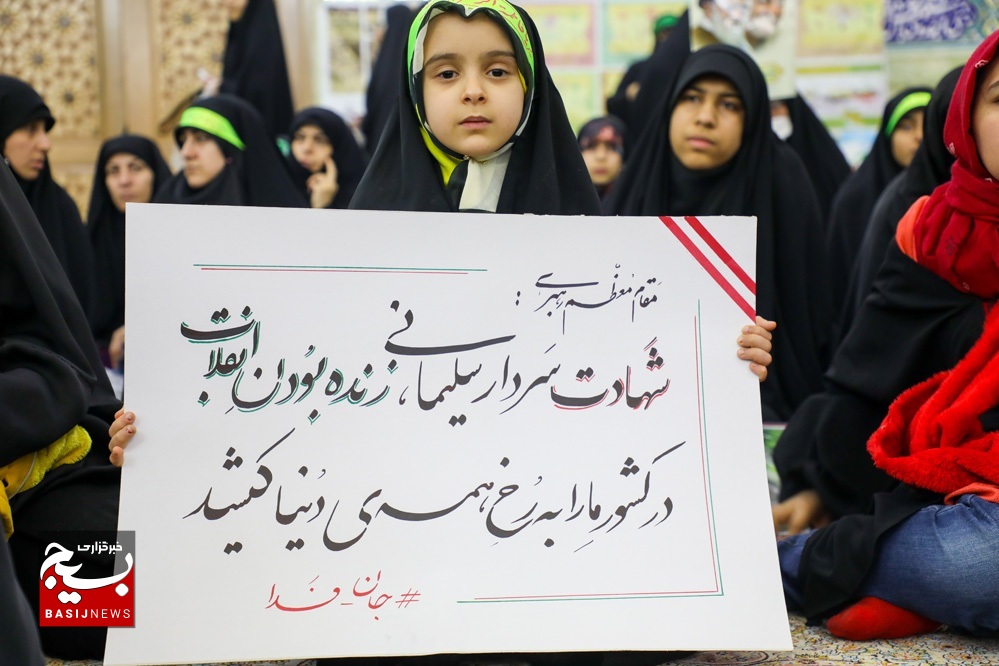 مقام معظّم رهبری :
شهادت سردار سلیمانی، زنده بودن انقلاب
در کشور ما را به رخ همه‌ی دنیا کشید
#جان_فدا
خبرگزاری
بسیج
BASIJNEWS